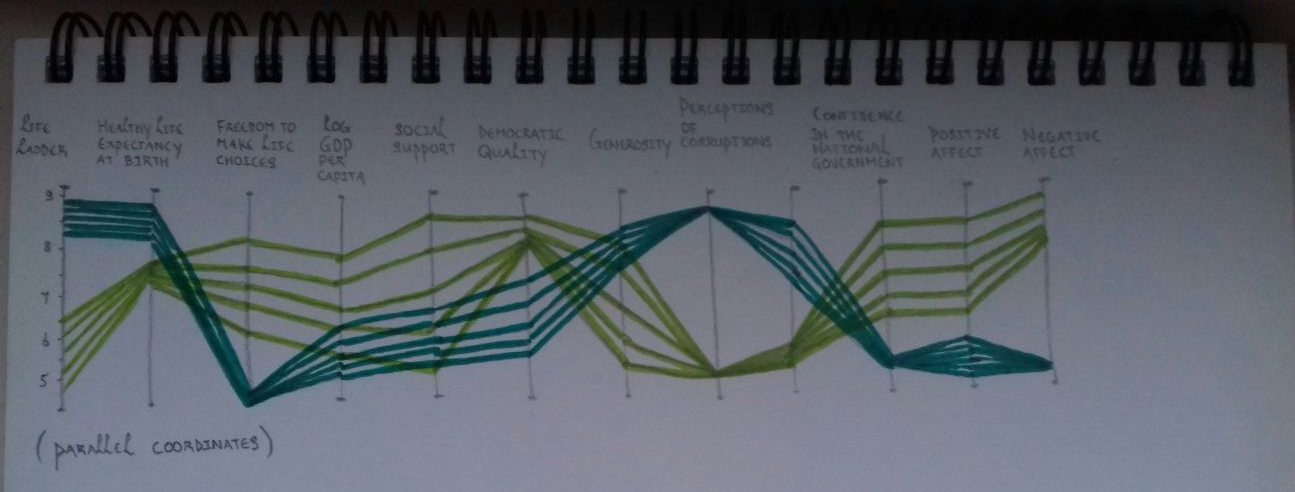 LIFE
LADDER
HEALTHY LIFE
EXPECTANCY
AT BIRTH
FREEDOM TO
MAKE LIFE
CHOICES
LOG
GDP
PER
CAPITA
SOCIAL
SUPPORT
DEMOCRATIC
QUALITY
GENEROSITY
PERCEPTIONS
OF
CORRUPTIONS
CONFIDENCE
IN THE
NATIONAL
GOVERNMENT
POSITIVE
AFFECT
NEGATIVE
AFFECT
9
8
7
6
5
(PARALLEL COORDINATES)